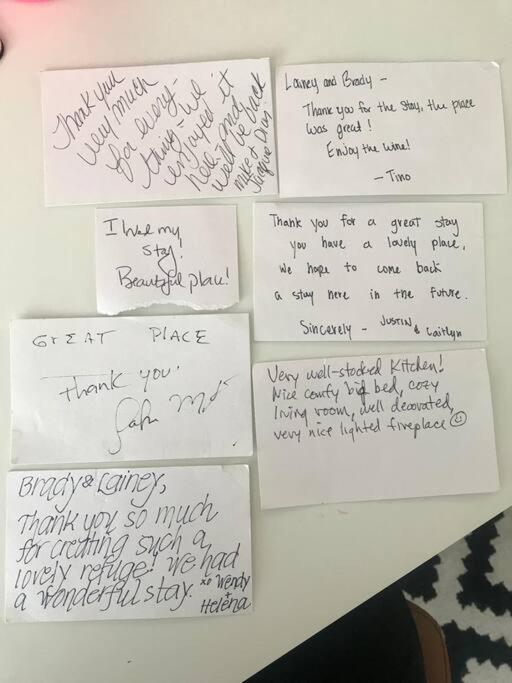 Thank you
very much
for every-
thing - we
enjoyed it
here and
we'll be back
Mike &
Lainey and Brady -
Thank you for the stay, the place
was great!
Enjoy the wine!
- Tino
I loved my
stay!
Beautiful place!
Thank you for a great stay
you have a lovely place,
we hope to come back
a stay here in the future.
Sincerely - JUSTIN & Caitlyn
GREAT PLACE
Thank you!
Very well-stocked Kitchen!
Nice comfy big bed, cozy
living room, well decorated,
very nice lighted fireplace ☺
Brady & Lainey,
Thank you so much
for creating such a
lovely refuge! We had
a wonderful stay. xo Wendy
+
Helena